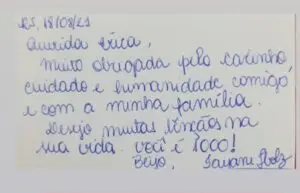 18/08/21
Querida Érica,
Muito obrigada pelo carinho,
cuidado e humanidade comigo
e com a minha família.
Desejo muitas bênçãos na
sua vida. você é 1000!
Beijo,